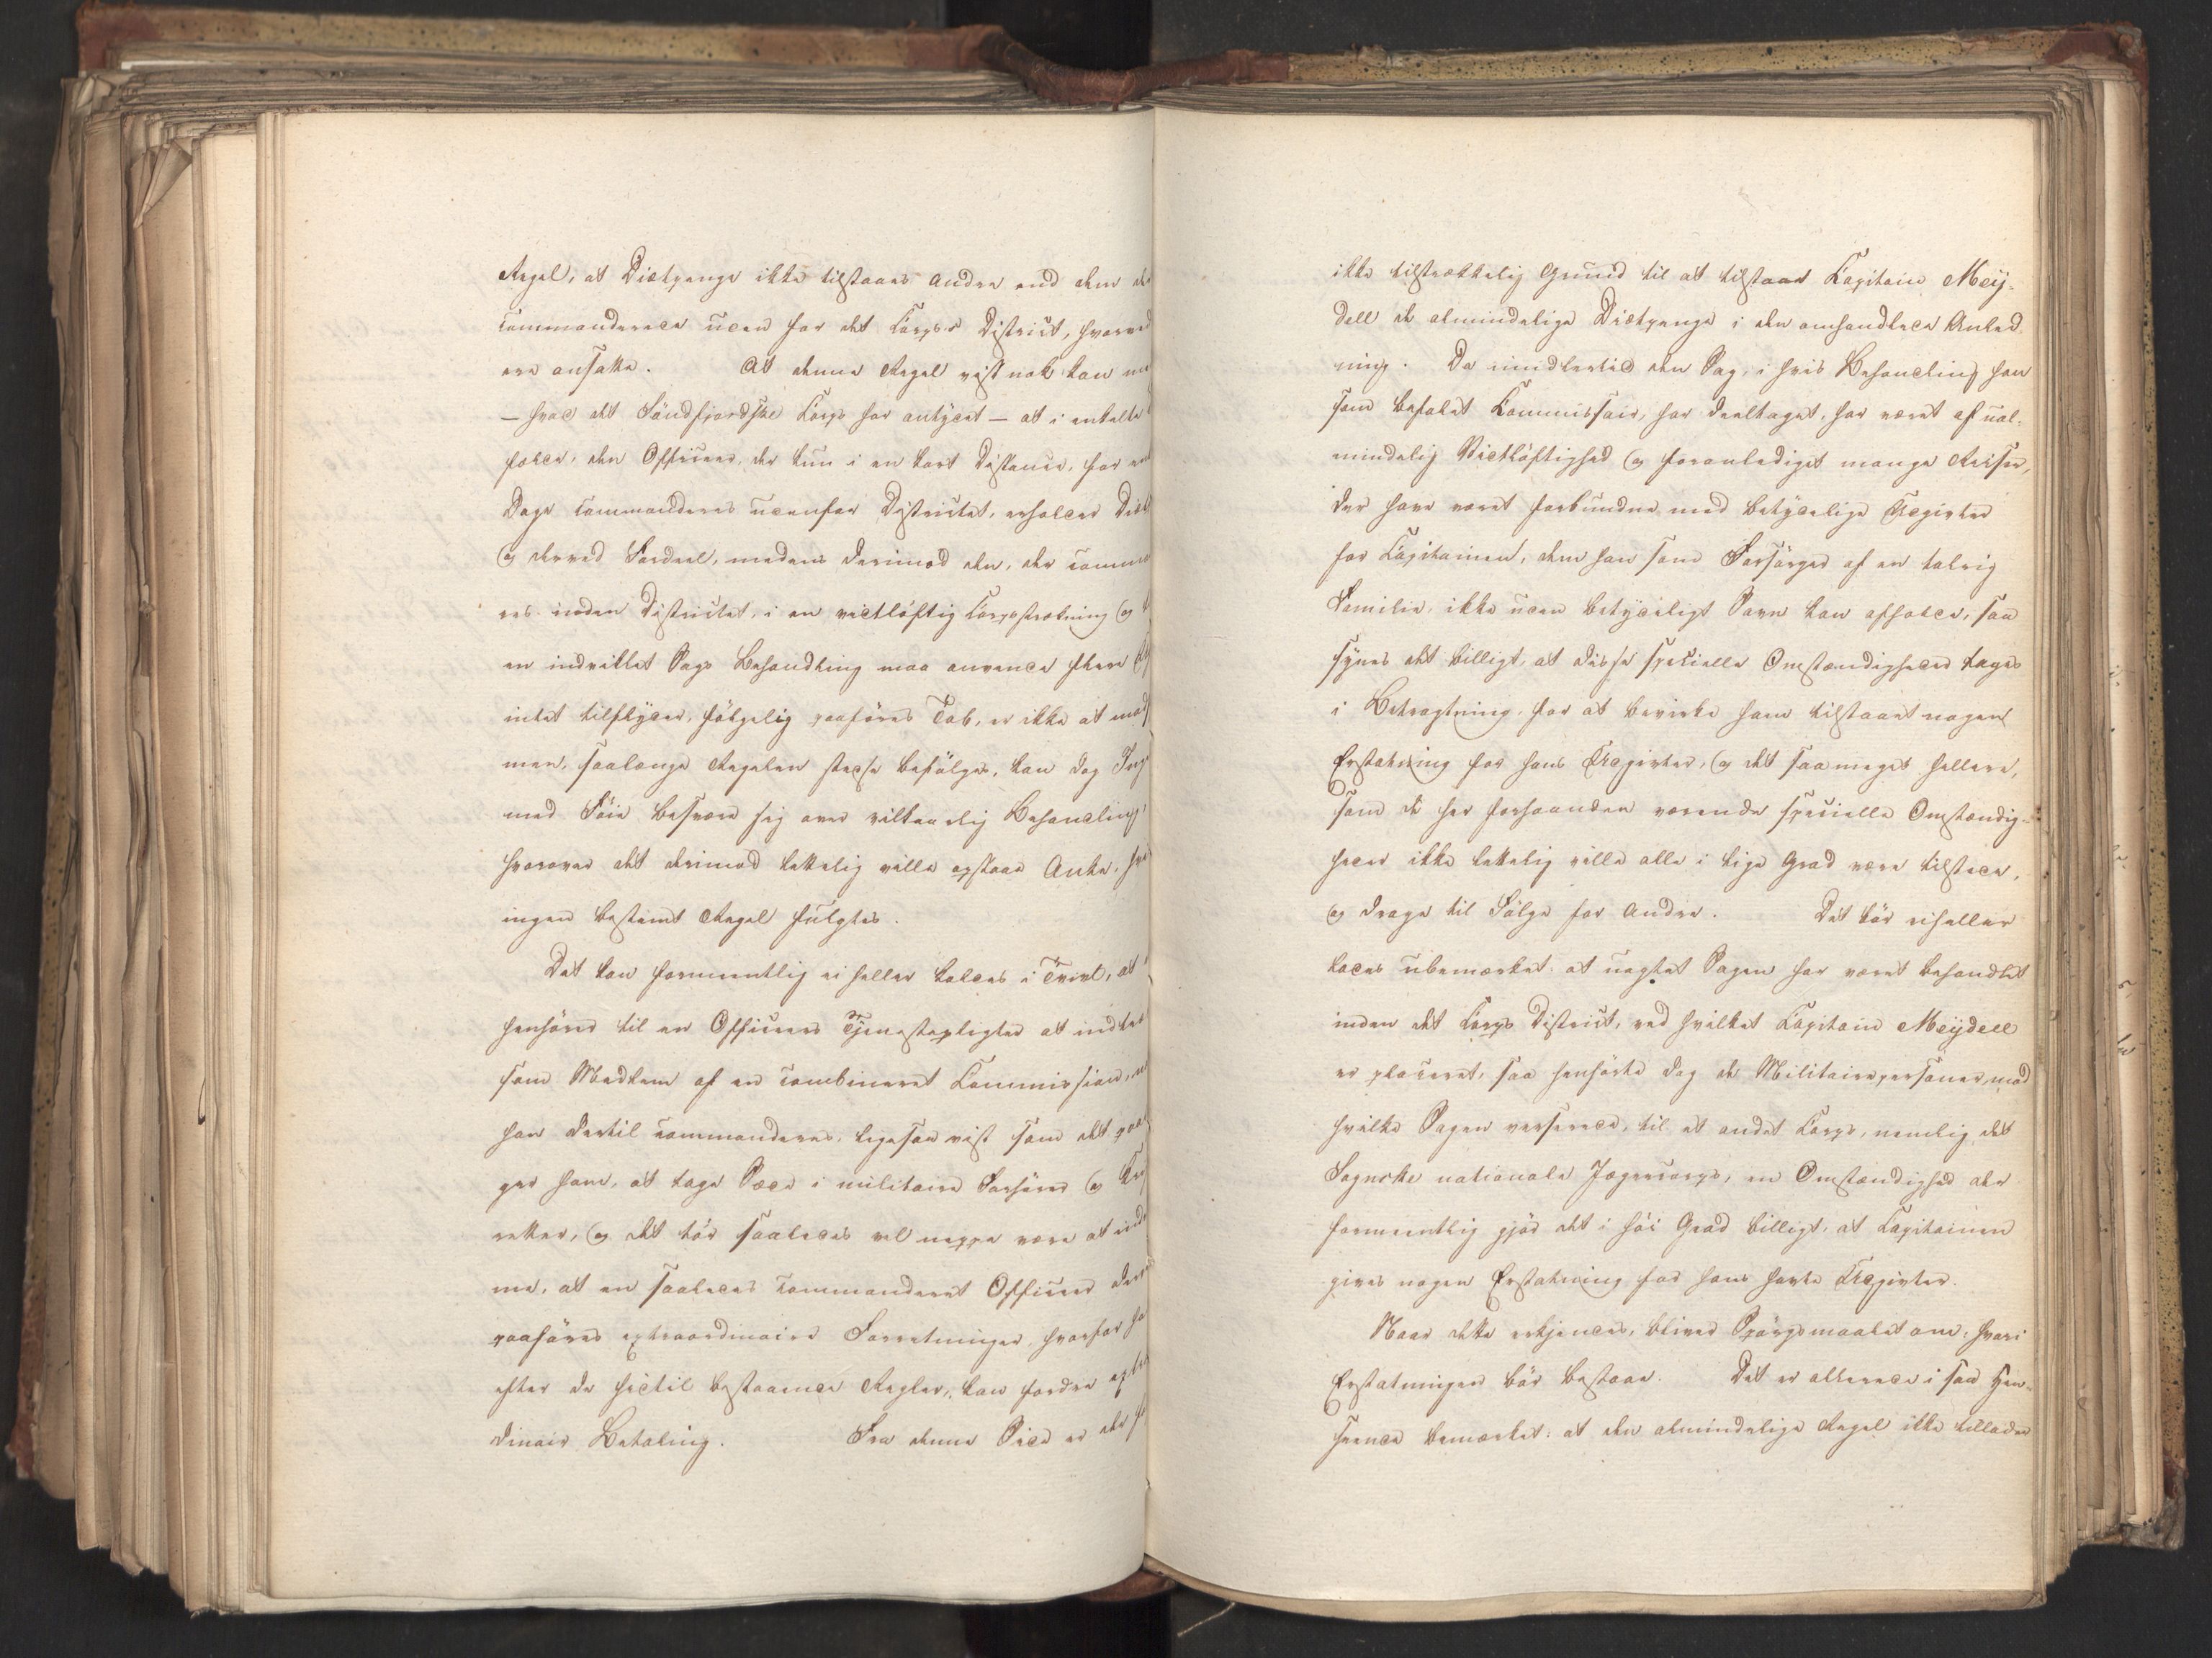 Regel, at Diætpenge ikke tilstaaes Andre end dem der
commanderes uden for det Corps's District, hvorved
ere ansatte. At denne Regel vistnok kan
– hvad det Söndfjordske Corps har antydet – at i enkelte
falde, den Officeer, der kun i en kort Distance, for en
Dags commanderes udenfor Districtet, erholder
og derved Fordeel, medens derimod den, der
res inden Districtet, i en vidtlöftig Corpsstrækning og
en indviklet Sags Behandling maa anvende flere
intet tilflyder, fölgelig paaföres Tab, er ikke at
men, saalænge Regelen stedse befölges, kan dog
med Föie besvære sig over vilkaarlig Behandling,
hvorover det derimod lettelig ville opstaae Anke,
ingen bestemt Regel fulgtes.
Det kan formeentlig ei heller kaldes i Tvivl, at
henhörer til en Officeers Tjenestepligter at
som Medlem af en combineret Commission,
han dertil commanderes, ligesaa vist som det
ger ham, at tage Sæde i militaire Forhörer og
retter, og det tör saaledes vel neppe være at
me, at en saaledes commanderet Officeer
paaföres extraordinaire Forretninger, hvorfor
efter de hidtil bestaaende Regler, kan fordre
dinair Betaling. Fra denne Side er der
ikke tilstrækkelig Grund til at tilstaae Capitain Mey-
dell de almindelige Diætpenge i den omhandlede Anled
ning. Da imidlertid den Sag, i hvis Behandling han
som befalet Commissair, har deeltaget, har været af ual-
mindelig Vidtlöftighed og foranlediget mange Reiser,
der have været forbundne med betydelige Udgivter
for Capitainen, dem han som Forsörger af en talrig
Familie, ikke uden betydeligt Savn kan afholde, saa
synes det billigt, at disse specielle Omstændigheder tages
i Betragtning, for at bevirke ham tilstaaet nogen
Erstatning for hans Udgivter, og det saameget hellere,
som de her forhaanden værende specielle Omstændig-
heder ikke lettelig ville alle i lige Grad være tilstede,
og drage til Fölge for Andre. Det bör eiheller
lades ubemærket at uagtet Sagen har været behandlet
inden det Corps District, ved hvilket Capitain Meydell
er placeret, saa henhörte dog de Militairepersoner, mod
hvilke Sagen versered, til et andet Corps, nemlig det
Sognske nationale Jægercorps, en Omstændighed der
formeentlig gjör det i höi Grad billigt, at Capitainen
gives nogen Erstatning for hans havte Udgivter.
Naar dette erkjendes, bliver Spörgsmaalet om: hvori
Erstatningen bör bestaae. Det er allerede i saa Hen-
seende bemærket: at den almindelige Regel ikke tillader